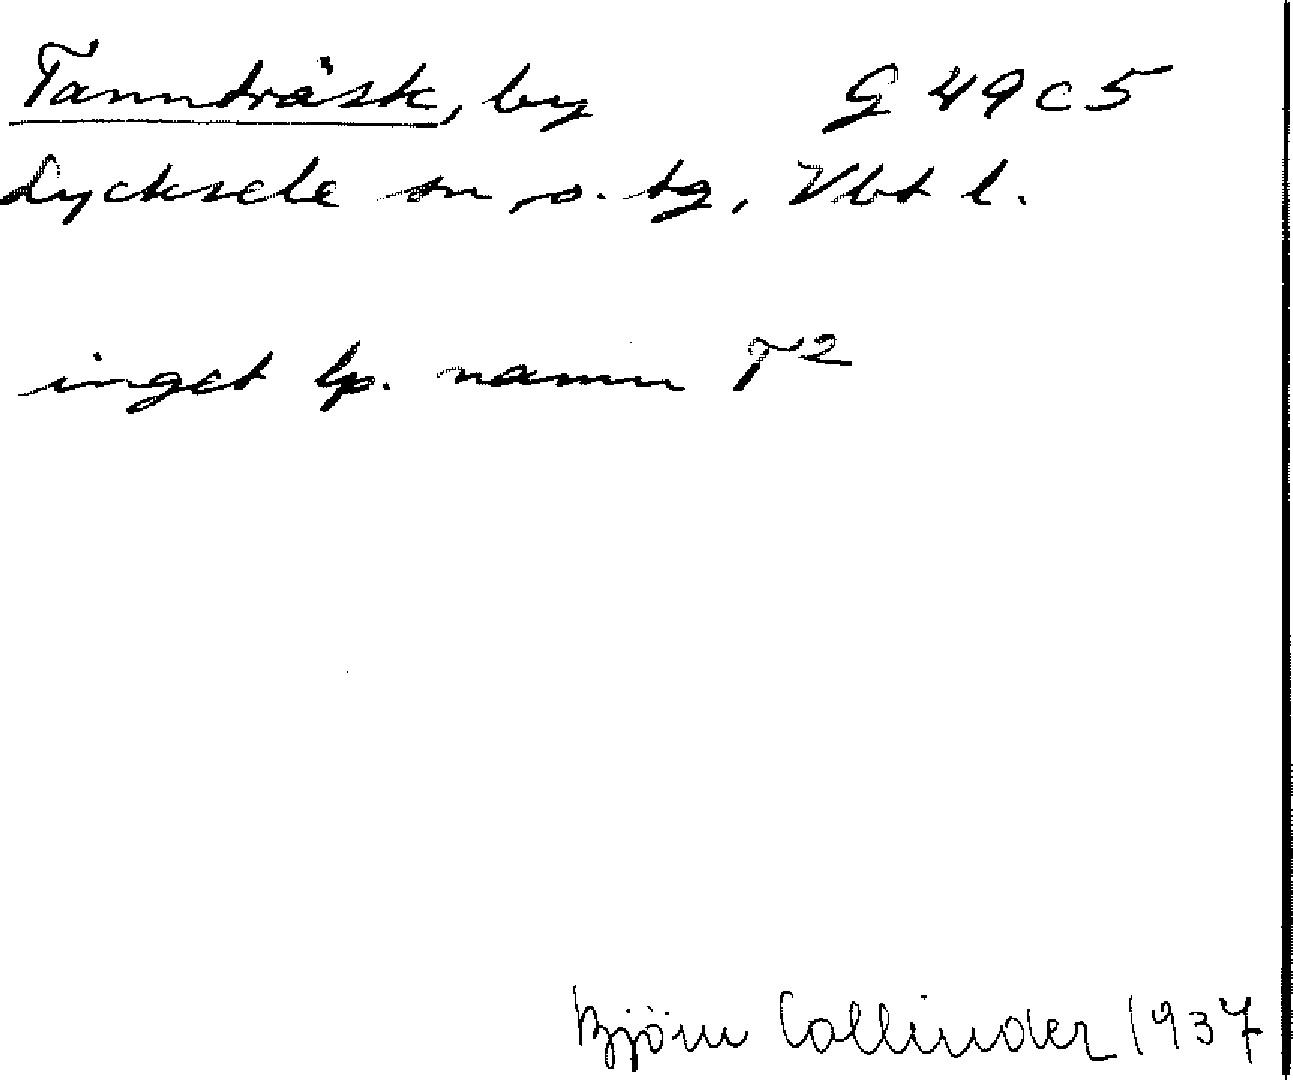 Tannträsk, by G 49 c 5
Lycksele sn o. tg, Vbt l.
inget lp. namn T2
Björn Collinder 1937